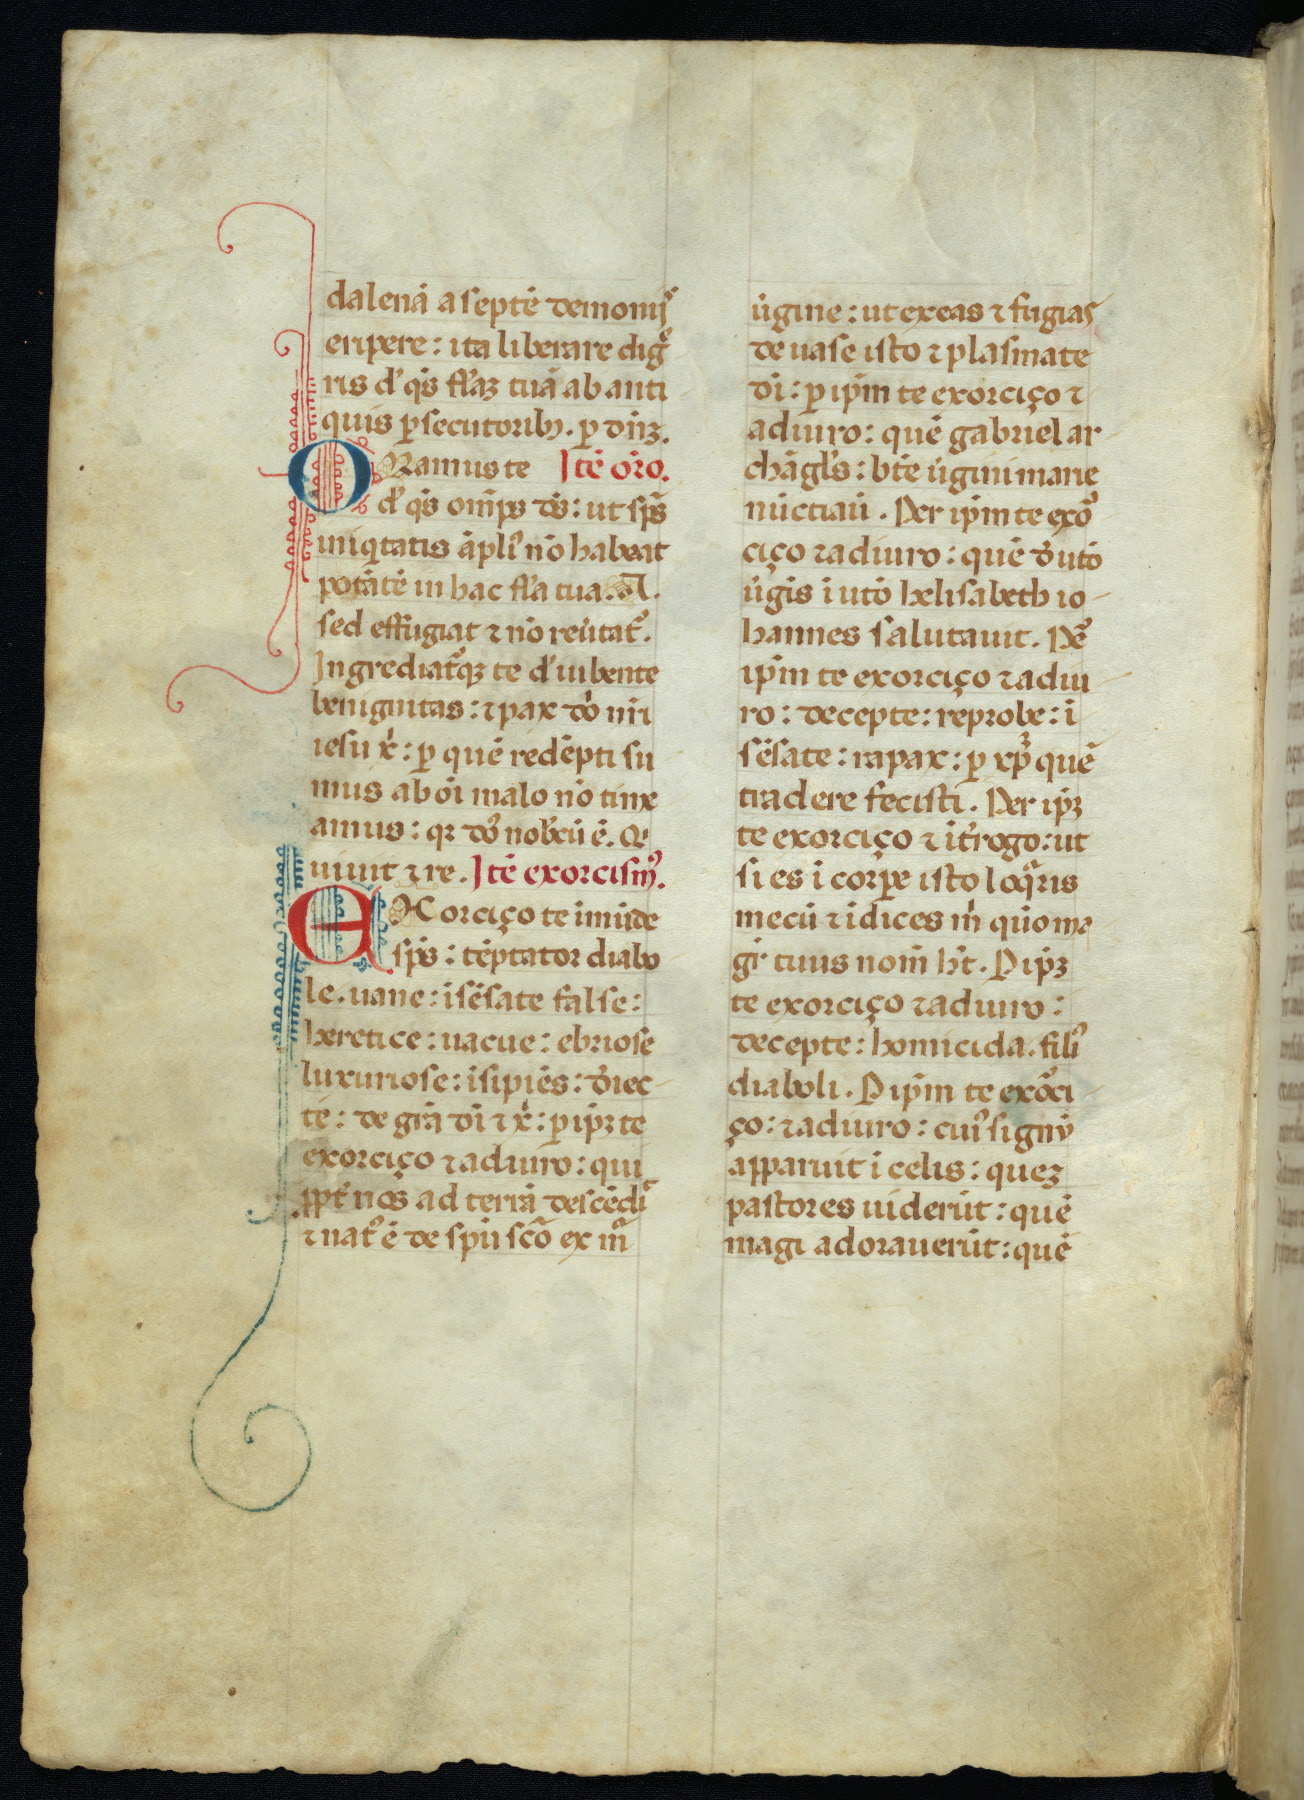 dalenā a septē demonijˢ
eripere: ita liberare digᵉ
ris d' q̄s fl'aꝫ tuā ab anti
quis ꝑsecutoribꝫ. ꝑ dn̄ꝫ.
ORamus te Itē or̄o.
d' q̄s om̄ps ds̄: ut sp̄s
iniqtatis āpli' nō habeat
potātē in hac fl'a tua. A.
sed effugiat ⁊ nō reūtat᷑.
Ingrediat᷑qꝫ te d' iubente
benignitas: ⁊ pax dō nr̄i
iesu x̄: ꝑ quē redēpti su
mus ab ōi malo nō time
amus: qꝛ dō nobcū ē. Q'
uiuit ⁊ re. Itē exorcism'.
EXorciço te īmūde
sp̄s: tēptator diabo
le. uane: īsēsate false:
heretice: uacue: ebriose
luxuriose: īsipiēs: ōiec
te: de gr̄a dī ⁊ x̄: ꝑ ip̄ꝫ te
exorciço ⁊ adiuro: qui
ꝓpt' nos ad terrā descēdiᵗ
⁊ nat' ē de sp̄u scō ex mᵃ
ūgine: ut exeas ⁊ fugias
de uase isto ⁊ plasmate
dī: ꝑ ip̄m te exorciço ⁊
adiuro: quē gabriel ar
chāgl's: bt̄e ūgini marie
nūctiaū. Per ip̄m te exoʳ
ciço ⁊ adiuro: quē d' utō
ūgīs ī utō helisabeth io
hannes salutauit. Peʳ
ip̄m te exorciço ⁊ adiu
ro: decepte: reprobe: ī
sēsate: rapax: ꝑ xp̄ꝫ quē
tradere fecisti. Per ip̄ꝫ
te exorciço ⁊ īt'rogo: ut
si es ī corꝑe isto loqᵃris
mecū ⁊ īdices m̄ quō ma
gr̄ tuus nom̄ h̄t. P ip̄ꝫ
te exorciço ⁊ adiuro:
decepte: homicida. fili'
diaboli. P ip̄m te exoʳci
ço: ⁊ adiuro: cui' signū
apparuit ī celis: queꝫ
pastores uiderūt: quē
magi adorauerūt: quē